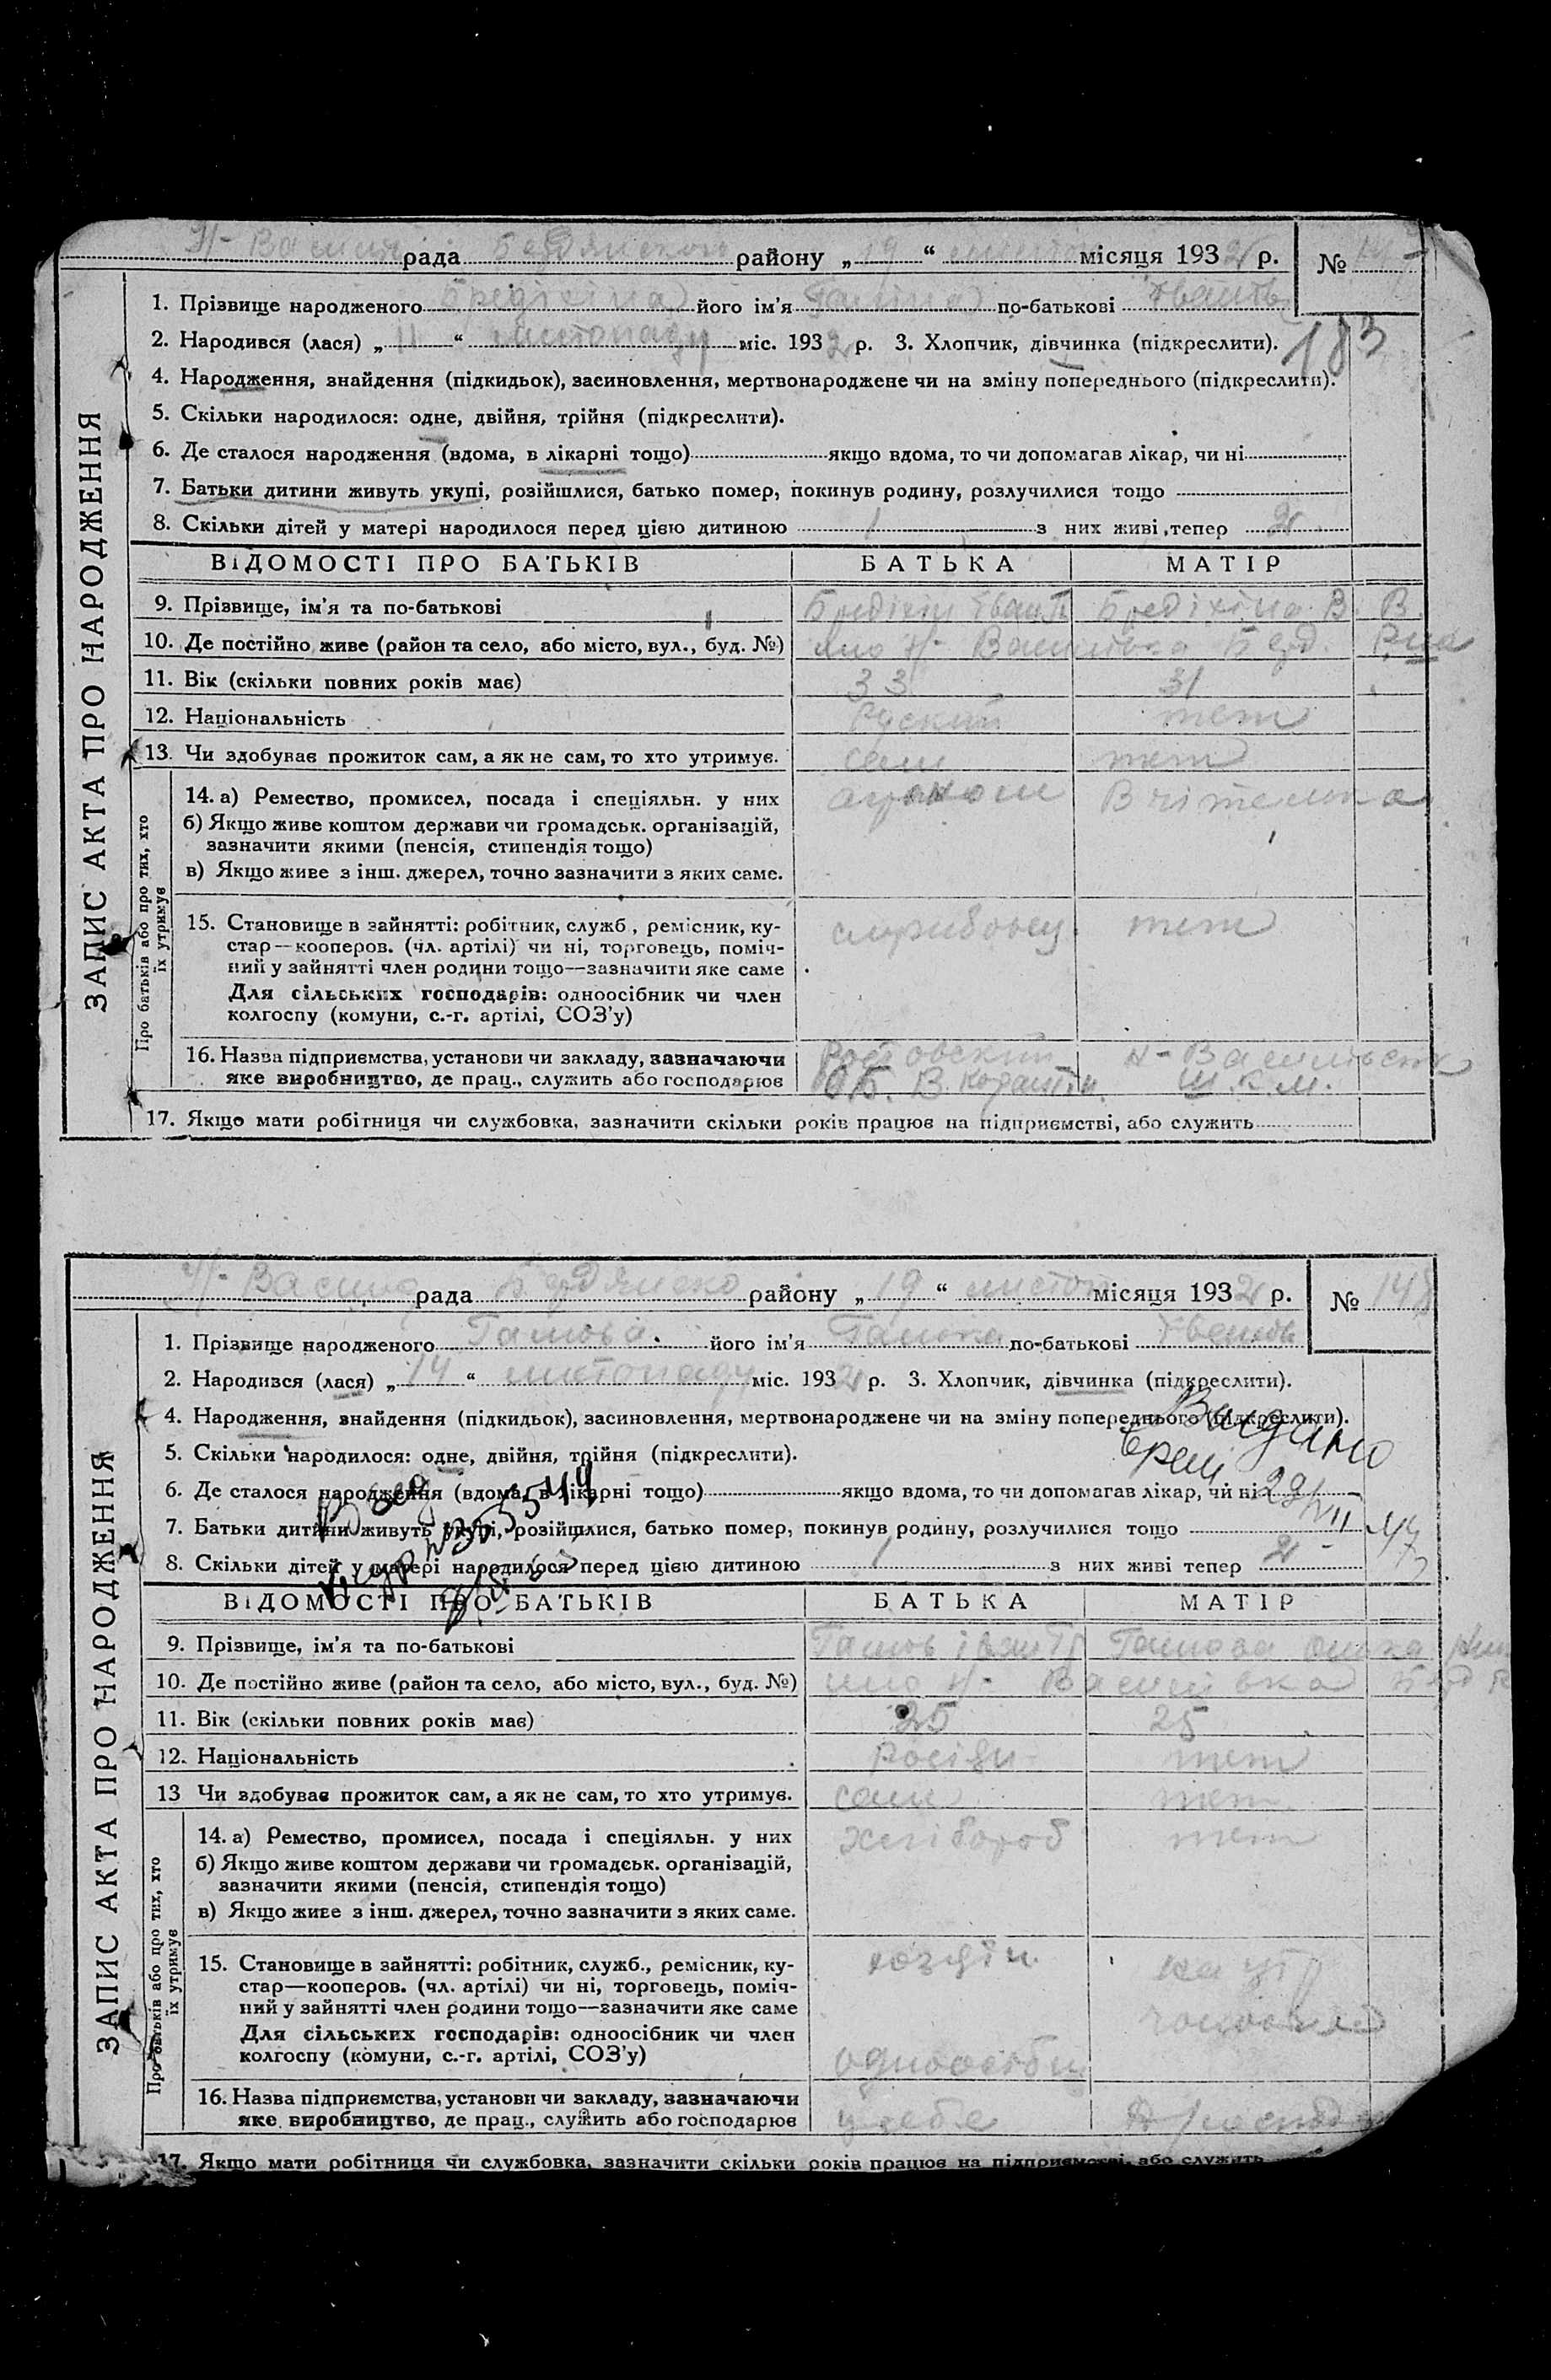 Н- Васил рада Бердянсько району „ 19 “ листоп місяця 1932 р. №
1. Прізвище народженого Бредіхіна його ім'я Галина по-батькові Іванів
2. Народився (лася) „ 11 “ листопаду міс. 1932 р. 3. Хлопчик, дівчинка (підкреслити).
183
4. Народження, знайдення (підкидьок), засиновлення, мертвонароджене чи на зміну попереднього (підкреслити).
5. Скільки народилося: одне, двійня, трійня (підкреслити).
6. Де сталося народження (вдома, в лікарні тощо) якщо вдома, то чи допомагав лікар, чи ні
7. Батьки дитини живуть укупі, розійшлися, батько помер, покинув родину, розлучилися тощо
8. Скільки дітей у матері народилося перед цією дитиною 1 з них живі тепер 2
ЗАПИС АКТА ПРО НАРОДЖЕННЯ
ВІДОМОСТІ ПРО БАТЬКІВ БАТЬКА МАТІР
9. Прізвище, ім'я та по-батькові Бредіхін Іван П Бредіхіна В. В.
10. Де постійно живе (район та село, або місто, вул., буд. №) Н- Василівка Берд. Р-на
11. Вік (скільки повних років має) 33 31
12. Національність Руский теж
13. Чи здобуває прожиток сам, а як не сам, то хто утримує. сам теж
Про батьків або про тих, хто їх утримує
14. а) Ремество, промисел, посада і спеціяльн. у них агроном Вчителька
б) Якщо живе коштом держави чи громадськ. організацій,
зазначити якими (пенсія, стипендія тощо)
в) Якщо живе з інш. джерел, точно зазначити з яких саме.
15. Становище в зайнятті: робітник, служб., ремісник, ку- службовец теж
стар—кооперов. (чл. артілі) чи ні, торговець, поміч-
ний у зайнятті член родини тощо—зазначити яке саме
Для сільських господарів: одноосібник чи член
колгоспу (комуни, с.-г. артілі, СОЗ'у)
16. Назва підприємства, установи чи закладу, зазначаючи Ростовский Н- Васильевск
яке виробництво, де прац., служить або господарює Ш.К.М.
17. Якщо мати робітниця чи службовка, зазначити скільки років працює на підприємстві, або служить
Н- Васил рада Бердянсько району „ 19 “ листоп місяця 1932 р. № 148
1. Прізвище народженого Галова його ім'я Галина по-батькові Іванів
2. Народився (лася) „ 14 “ листопаду міс. 1932 р. 3. Хлопчик, дівчинка (підкреслити).
4. Народження, знайдення (підкидьок), засиновлення, мертвонароджене чи на зміну попереднього (підкреслити).
Видано
5. Скільки народилося: одне, двійня, трійня (підкреслити).
6. Де сталося народження (вдома, в лікарні тощо) якщо вдома, то чи допомагав лікар, чи ні 29/VII
7. Батьки дитини живуть укупі, розійшлися, батько помер, покинув родину, розлучилися тощо 47
8. Скільки дітей у матері народилося перед цією дитиною 1 з них живі тепер 2
ЗАПИС АКТА ПРО НАРОДЖЕННЯ
ВІДОМОСТІ ПРО БАТЬКІВ БАТЬКА МАТІР
9. Прізвище, ім'я та по-батькові Галов Іван Галова
10. Де постійно живе (район та село, або місто, вул., буд. №) Н- Василівка Берд Р
11. Вік (скільки повних років має) 25 25
12. Національність Росіян теж
13 Чи здобуває прожиток сам, а як не сам, то хто утримує. сам теж
Про батьків або про тих, хто їх утримує
14. а) Ремество, промисел, посада і спеціяльн. у них хлібороб теж
б) Якщо живе коштом держави чи громадськ. організацій,
зазначити якими (пенсія, стипендія тощо)
в) Якщо живе з інш. джерел, точно зазначити з яких саме.
15. Становище в зайнятті: робітник, служб., ремісник, ку- хозяїн
стар—кооперов. (чл. артілі) чи ні, торговець, поміч-
ний у зайнятті член родини тощо—зазначити яке саме
Для сільських господарів: одноосібник чи член
колгоспу (комуни, с.-г. артілі, СОЗ'у) одноосібн
16. Назва підприємства, установи чи закладу, зазначаючи
яке виробництво, де прац., служить або господарює у себе
17. Якщо мати робітниця чи службовка, зазначити скільки років працює на підприємстві, або служить